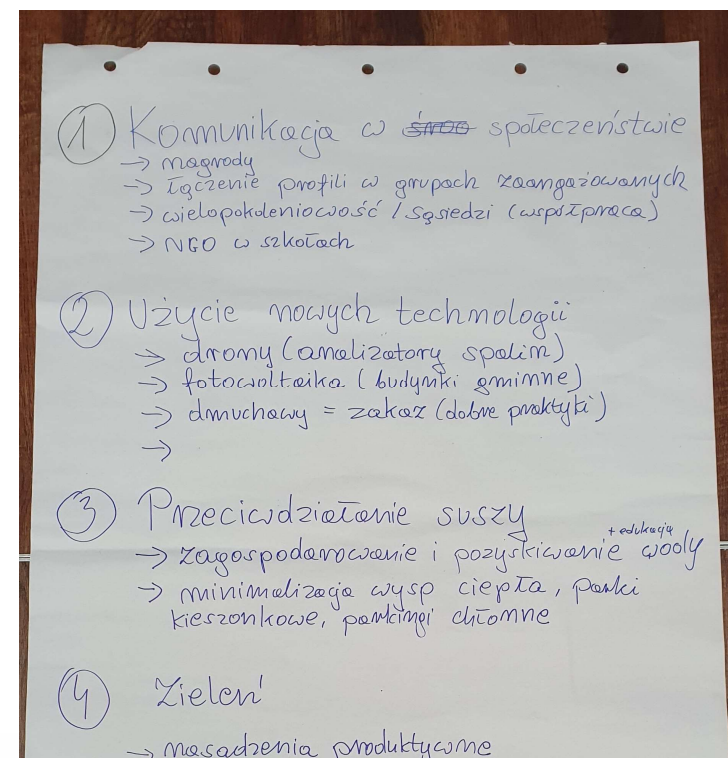 1 Komunikacja w społeczeństwie
→ nagrody
→ łączenie profili w grupach zaangażowanych
→ wielopokoleniowość / sąsiedzi (współpraca)
→ NGO w szkołach
2 Użycie nowych technologii
→ drony (analizatory spalin)
→ fotowoltaika (budynki gminne)
→ dmuchawy = zakaz (dobre praktyki)
→
3 Przeciwdziałanie suszy
+ edukacja
→ zagospodarowanie i pozyskiwanie wody
→ minimalizacja wysp ciepła, parki
kieszonkowe, parkingi chłonne
4 Zieleń
→ nasadzenia produktywne